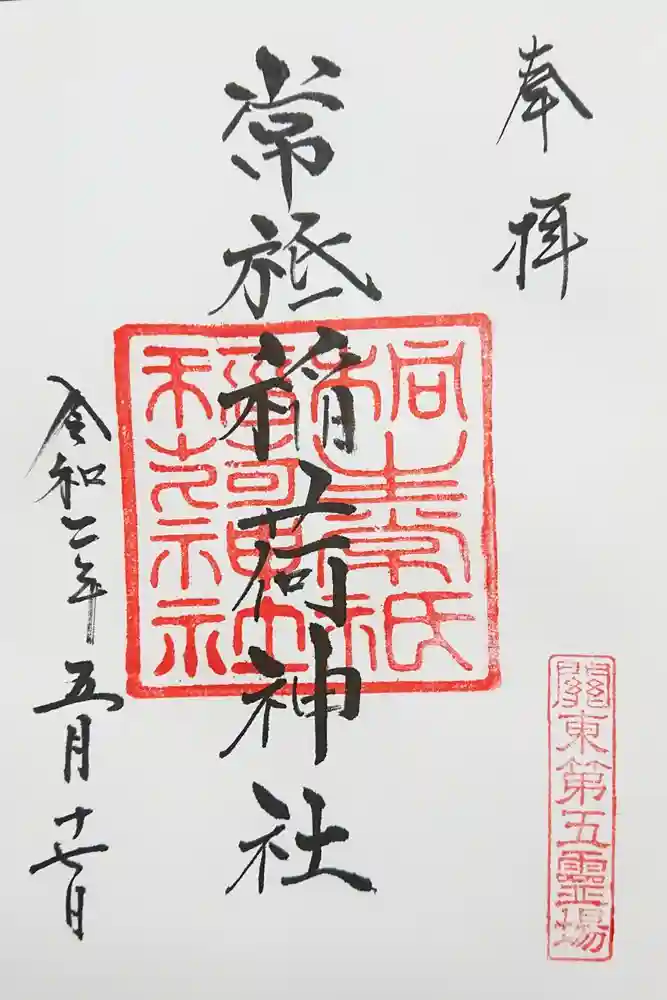 奉拝
常祇稲荷神社
令和二年五月十七日
關東第五靈場